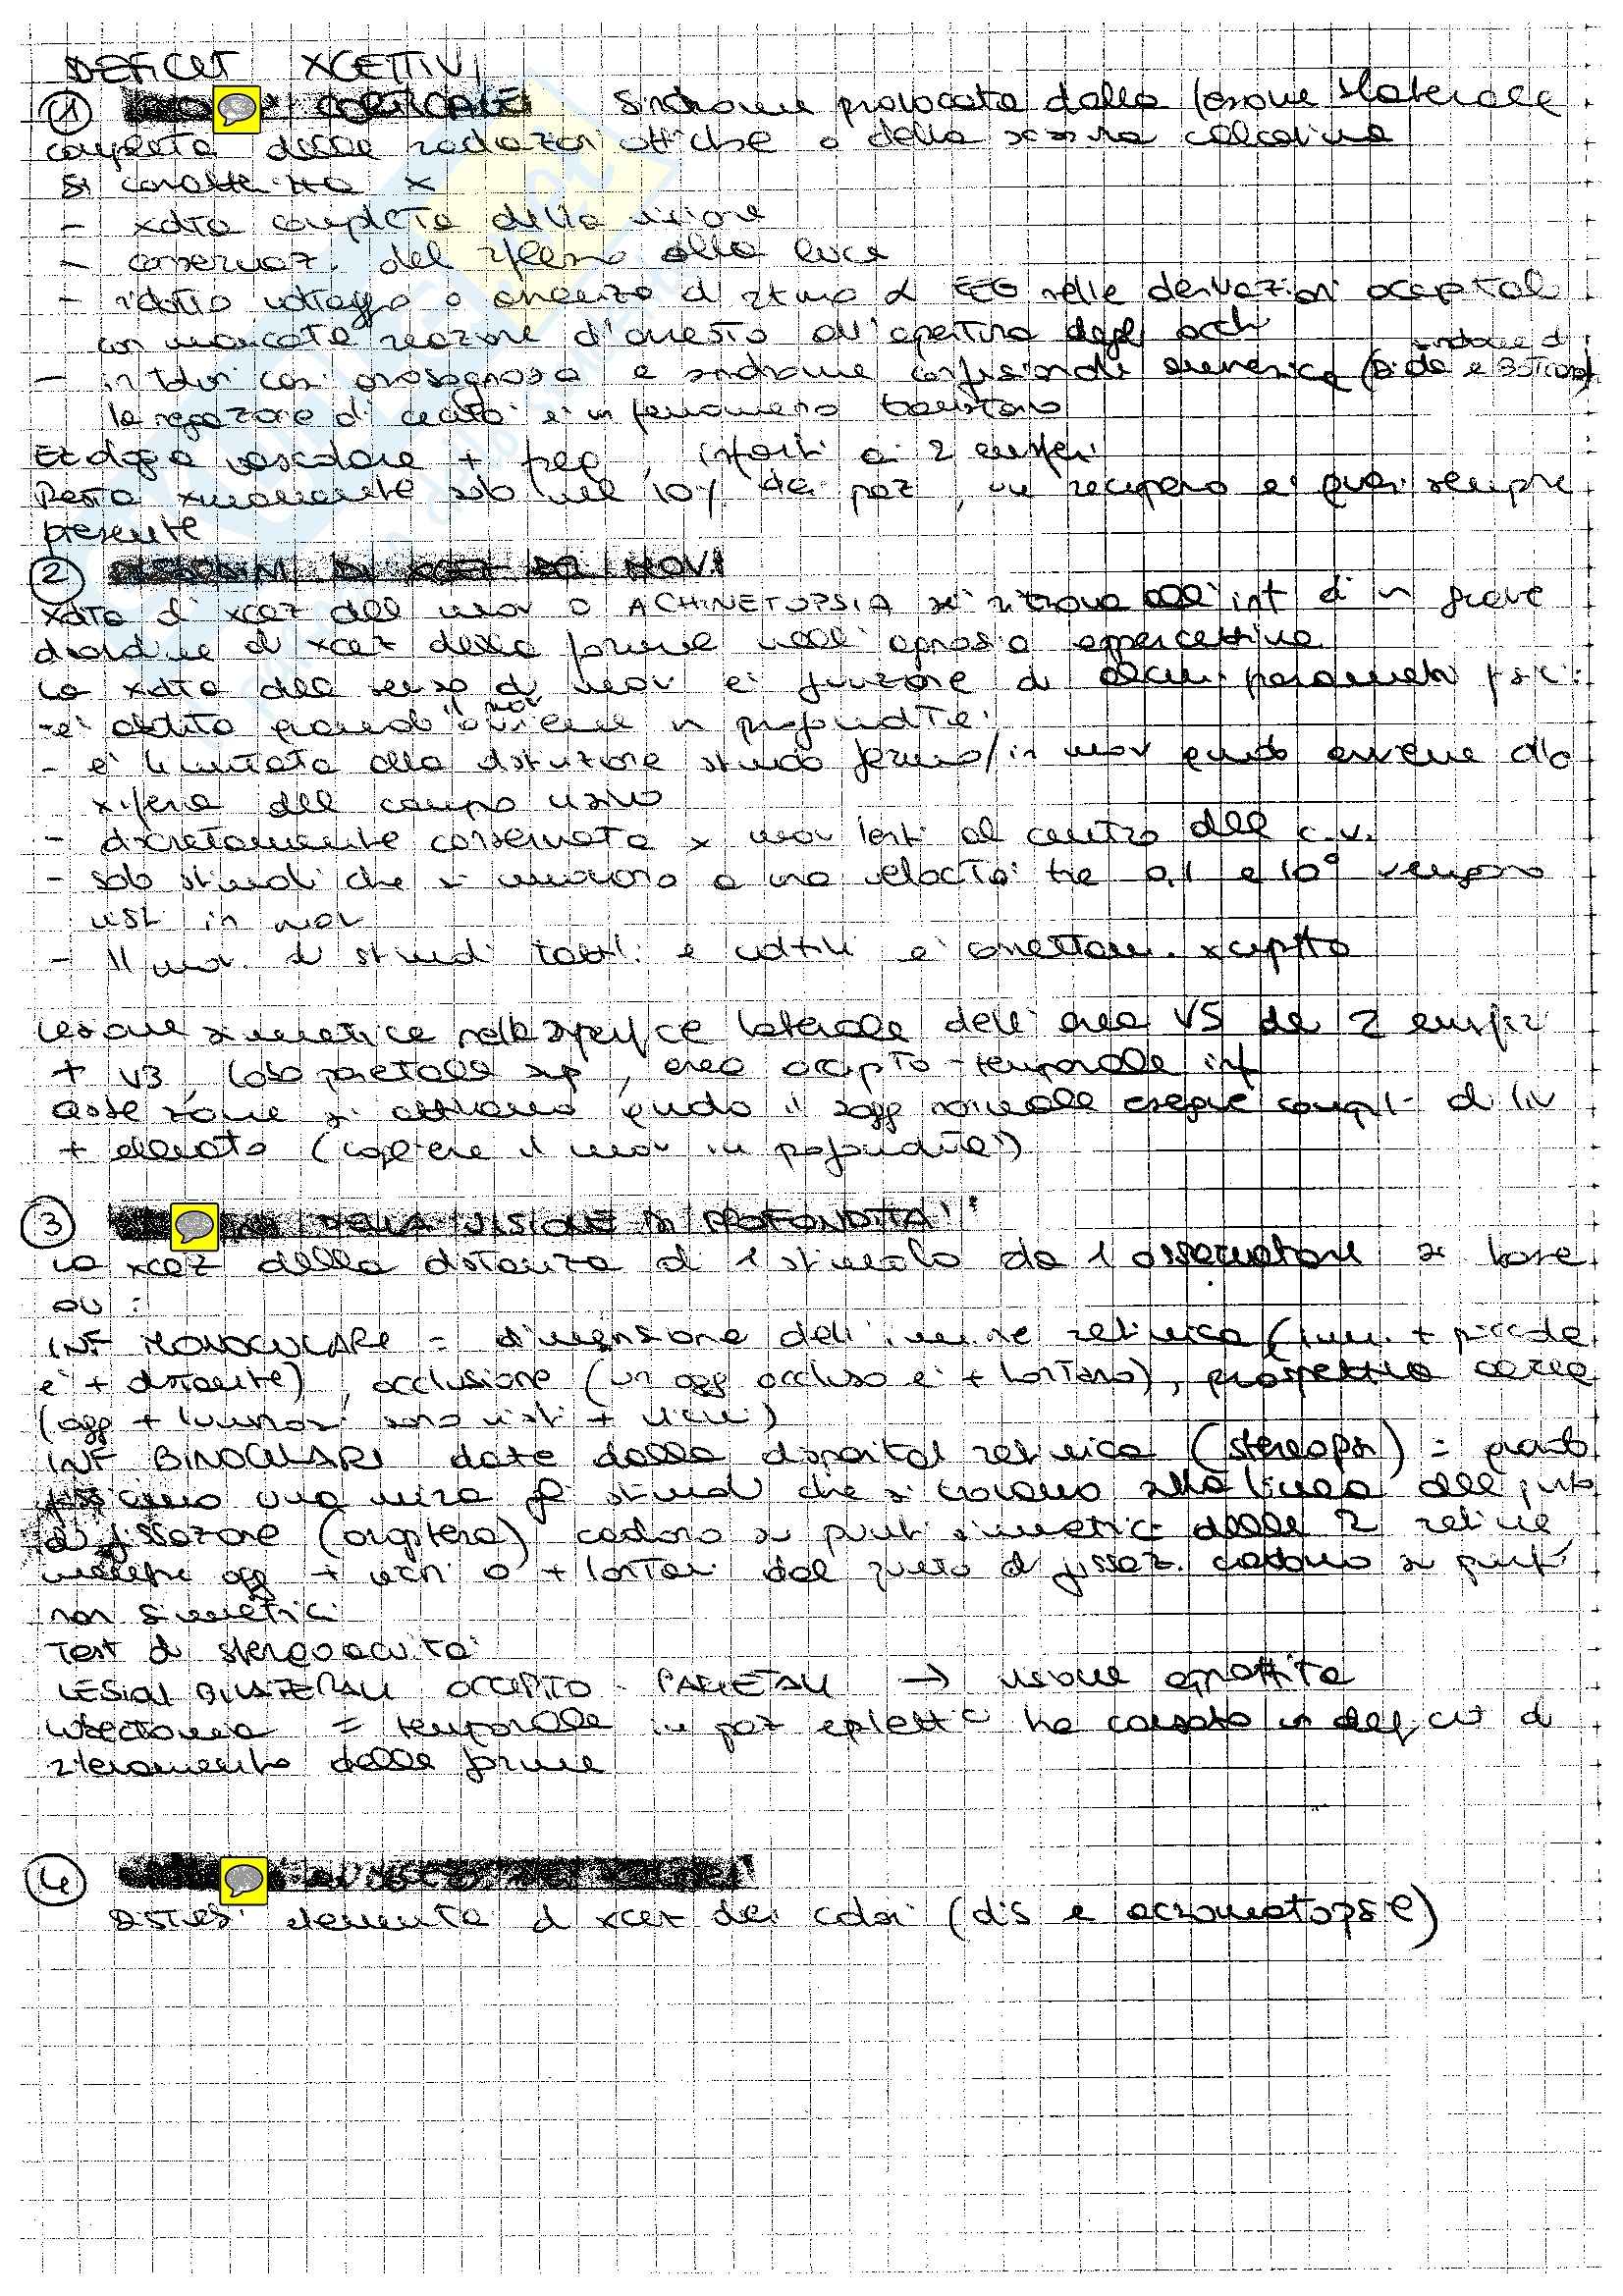 DEFICIT XCETTIVI
① CORTICALE: Sindrome provocata dalla lesione bilaterale
completa delle radiazioni ottiche o della scissura calcarina
Si caratterizza x
- xdita completa della visione
- conservaz. del riflesso alla luce
- ridotto voltaggio o assenza di ritmo α EEG nelle derivazioni occipitali
con mancata reazione d'arresto all'apertura degli occhi
- in taluni casi anosognosia e sindrome confusionale amnesica (sindrome di Dide e Botcazo)
la negazione di cecità è un fenomeno transitorio
Eziologia vascolare + freq, infarti ai 2 emisferi
Resta xmanente solo nel 10% dei paz, un recupero è quasi sempre
presente
② DISORDINI DI XCEZ DEL MOV.
Xdita di xcez del mov o ACHINETOPSIA si ritrova all'int di un grave
disordine di xcez della forma nell'agnosia appercettiva
La xdita del senso di mov è funzione di alcuni parametri fisici:
- è abolito quando il mov avviene in profondità
- è limitata alla distinzione stimolo fermo/in mov quando avviene alla
xiferia del campo visivo
- discretamente conservata x mov lenti al centro del c.v.
- solo stimoli che si muovono a una velocità tra 0,1 e 10° vengono
visti in mov
- Il mov. di stimoli tattili e uditivi è correttam. xcepito
Lesione simmetrica nella superficie laterale dell'area V5 dei 2 emisferi
+ V3, lobo parietale sup, area occipito-temporale inf
Queste zone si attivano quando il sogg normale esegue compiti di liv
+ elevato (cogliere il mov in profondità)
③ DELLA VISIONE DI PROFONDITA'
La xcez della distanza di 1 stimolo da 1 osservatore si basa
su:
INF MONOCULARI = dimensione dell'immine retinica (imm. + piccola
è + distante), occlusione (un ogg occluso è + lontano), prospettiva aerea
(ogg + luminosi sono visti + vicini)
INF BINOCULARI date dalla disparità retinica (stereopsi) = quando
fissiamo una mira gli stimoli che si trovano sulla linea del punto
di fissazione (oroptera) cadono su punti simmetrici delle 2 retine
mentre ogg + vicini o + lontani dal punto di fissaz. cadono su punti
non simmetrici
Test di stereoacuità
LESIONI BILATERALI OCCIPITO-PARIETALI → visione appiattita
lobectomia = temporale in paz epilettici ha causato un deficit di
rilevamento delle forme
④
Disturbi elementari di xcez dei colori (dis e acromatopsie)